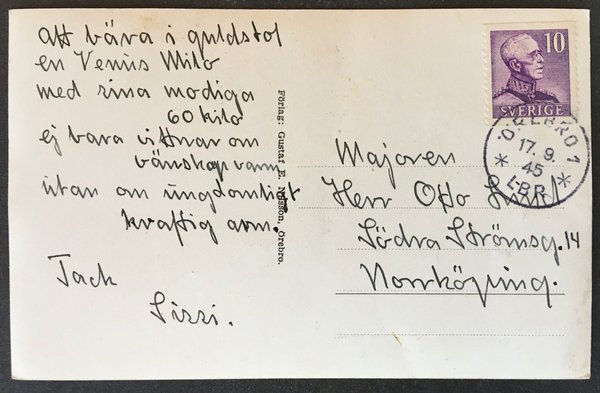 att bära i guldstol
en Venus Milo
med sina modiga
60 kilo
ej bara vittnar om
vänskap varm
utan om ungdomligt
kraftig arm.
Tack
Sizzi.
Förlag: Gustaf E. Nilsson, Örebro.
10
SVERIGE
ÖREBRO 1
17. 9.
45
LBR
Majoren
Herr Otto
Södra Strömsg. 14
Norrköping.